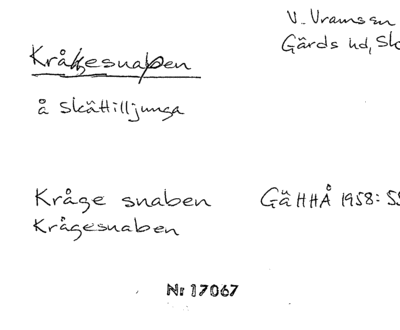 V. Vramsen
Gärds hd, Sk
Krågesnapen
å Skättilljunga
Kråge snaben GäHHÅ 1958: 55
Krågesnaben
Nr 17067